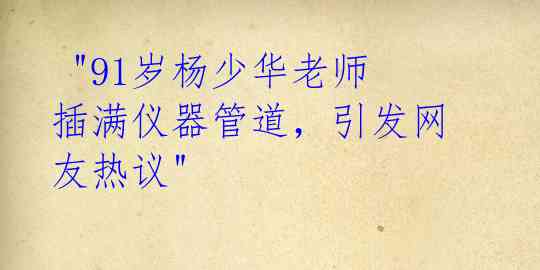 "91岁杨少华老师
插满仪器管道，引发网
友热议"